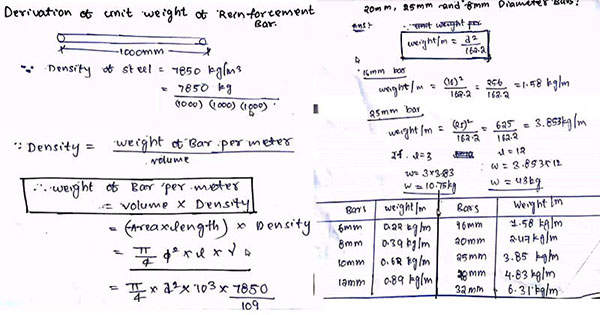 Derivation of unit weight of Reinforcement
Bar.
1000mm
∵ Density of steel = 7850 kg/m3
= 7850 kg
(1000) (1000) (1000)
∵ Density = weight of Bar per meter
volume
∴ weight of Bar per meter
= volume × Density
= (Area×length) × Density
= π/4 d² × l × γ
= π/4 × d² × 10³ × 7850
109
20mm, 25mm and 8mm Diameter Bars?
ans:- unit weight per
weight/m = d²/162.2
16mm bar
weight/m = (16)²/162.2 = 256/162.2 = 1.58 kg/m
25mm bar
weight/m = (25)²/162.2 = 625/162.2 = 3.853kg/m
If l=3
l = 12
w = 3×3.83
w = 3.853×12
w = 10.75kg
w = 43kg
Bars weight/m Bars Weight/m
6mm 0.22 kg/m 16mm 1.58 kg/m
8mm 0.39 kg/m 20mm 2.47 kg/m
10mm 0.62 kg/m 25mm 3.85 kg/m
12mm 0.89 kg/m 28mm 4.83 kg/m
32mm 6.31 kg/m